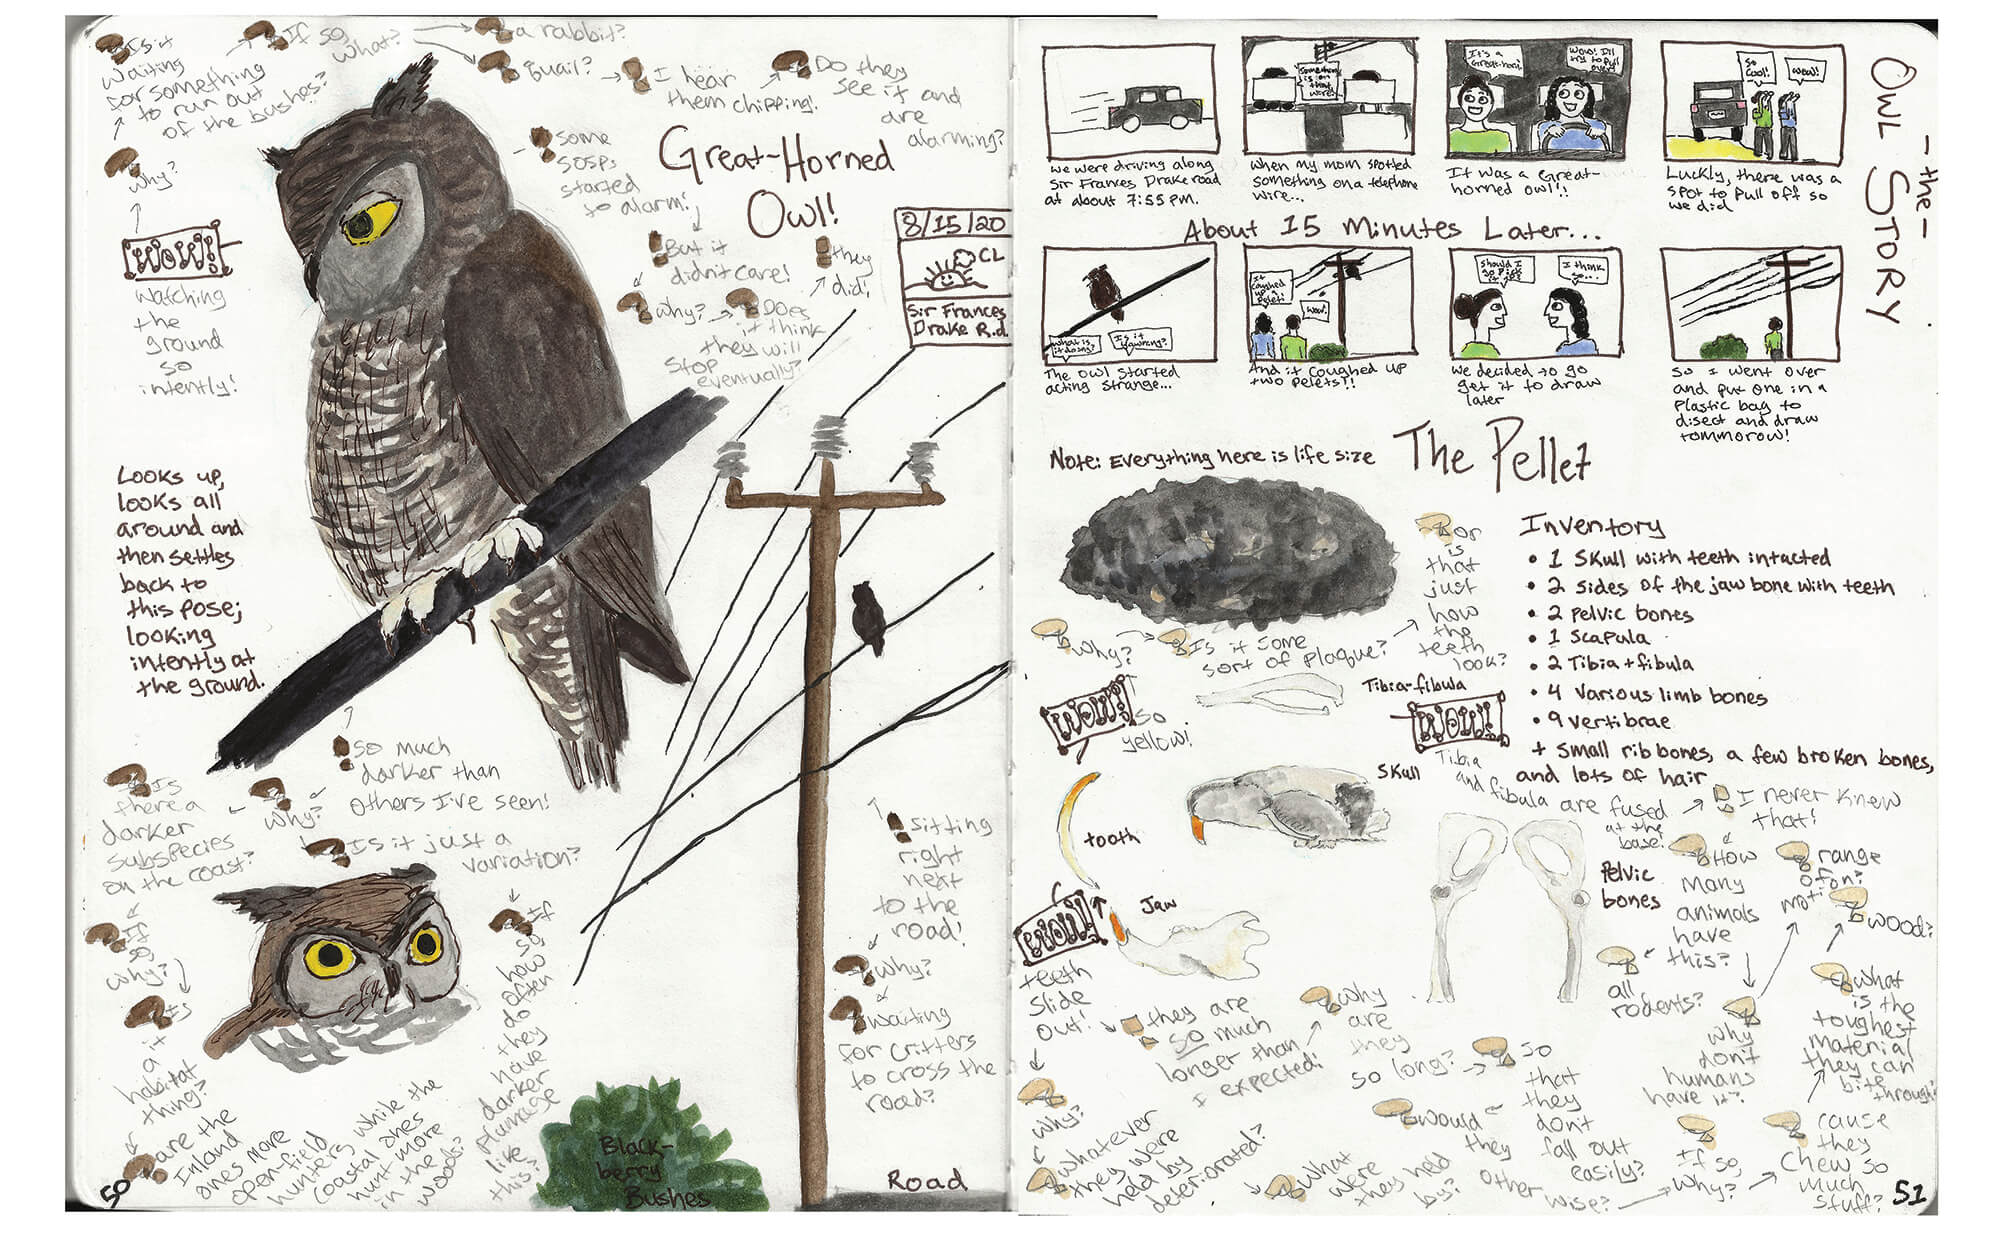 Is it
waiting
for something
to run out
of the bushes?
If so,
what?
a rabbit?
Quail?
I hear
them chipping!
Do they
see it and
are
alarming?
Why?
some
SOSPs
started
to alarm!
Great-Horned
Owl!
WOW!!
watching
the
ground
so
intently!
But it
didn't care!
they
did!
Why?
Does
it think
they will
stop
eventually?
8/15/20
CL
Sir Frances
Drake R.d.
Looks up,
looks all
around and
then settles
back to
this pose;
looking
intently at
the ground.
so much
darker than
others I've seen!
Why?
Is
there a
darker
subspecies
on the coast?
Is it just a
variation?
If
so,
why?
Is
it
a
habitat
thing?
are the
Inland
ones more
open-field
hunters while the
coastal ones
hunt more
in the
woods?
If
so, how
often
do
they
have
darker
plumage
like
this?
sitting
right
next
to the
road!
Why?
waiting
for critters
to cross the
road?
Black-
berry
Bushes
Road
50
OWL STORY
-the-
Something
is on
that
wire!
It's a
Great-horn!
Wow! I'll
try to pull
over!
So
cool!
Wow!
We were driving along
Sir Frances Drake road
at about 7:55 PM.
When my mom spotted
something on a telephone
wire...
It was a Great-
horned owl!!
Luckly, there was a
spot to pull off so
we did
About 15 Minutes Later...
What is
it doing?
Is it
yawning?
It
caughed
up a
pelet!
Wow!
Should I
go pick
it up?
I think
so...
The owl started
acting strange...
And it coughed up
two pelets!!
We decided to go
get it to draw
later
So I went over
and put one in a
plastic bag to
disect and draw
tommorow!
Note: Everything here is life size
The Pellet
Inventory
• 1 skull with teeth intacted
• 2 sides of the jaw bone with teeth
• 2 pelvic bones
• 1 scapula
• 2 Tibia + fibula
• 4 various limb bones
• 9 vertibrae
+ small rib bones, a few broken bones,
and lots of hair
Why?
Is it some
sort of plaque?
or
is
that
just
how
the
teeth
look?
WOW!
So
yellow!
Tibia-fibula
WOW!
Tibia
and fibula are fused
at the
base!
I never knew
that!
skull
tooth
Jaw
Pelvic
bones
How
many
animals
have
this?
all
rodents?
Why
don't
humans
have it?
range
of
motion?
WOW!
teeth
slide
out!
they are
so much
longer than
I expected!
Why
are
they
so long?
so
that
they
don't
fall out
easily?
Would
they
other
wise?
If so,
why?
cause
they
chew so
much
stuff?
what
is the
toughest
material
they can
bite
through?
wood?
Why?
Whatever
they were
held by
deteriorated?
What
were
they held
by?
51